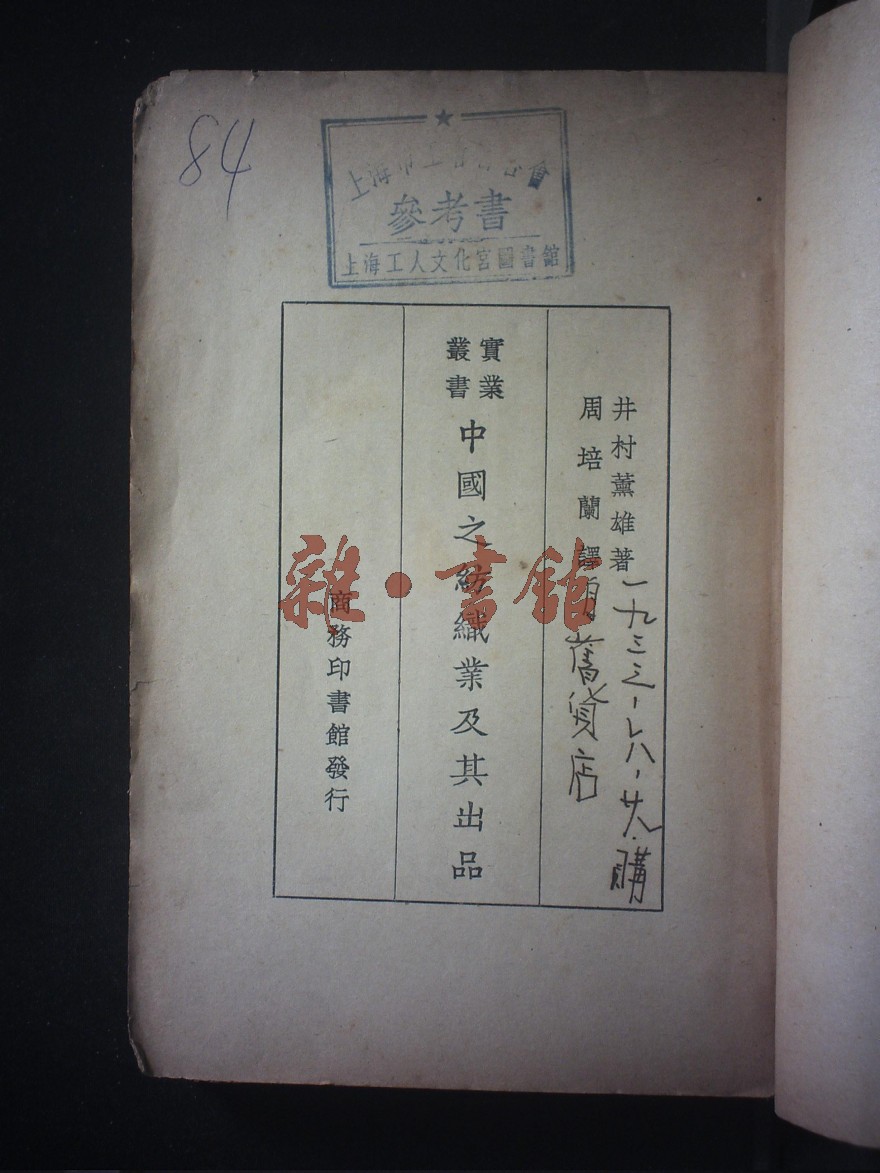 84
上海市工會聯合會
參考書
上海工人文化宮圖書館
井村薰雄著
周培蘭譯
實業
叢書
中國之紡織業及其出品
商務印書館發行
一九三三
購
舊貨店
雜·書館